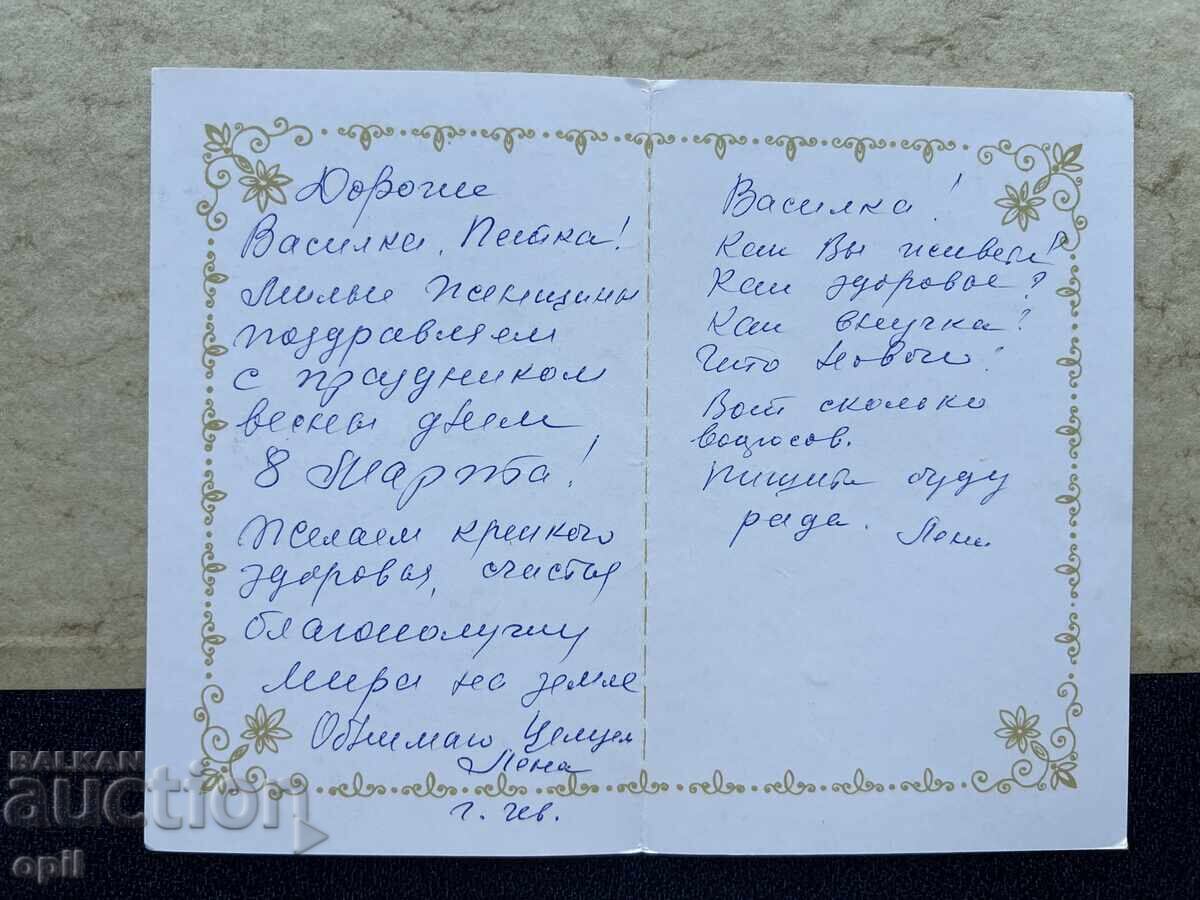 Дорогие
Василка, Петка!
Милые женщины
поздравляем
с праздником
весны днем
8 Марта!
Желаем крепкого
здоровья, счастья
благополучия
мира на земле
Обнимаю Целуем
Лена
г.
Василка!
Как Вы живете?
Как здоровье?
Как внучка?
Что нового?
Вот сколько
вопросов.
Пишите буду
рада. Лена
BALKAN
auction
opil